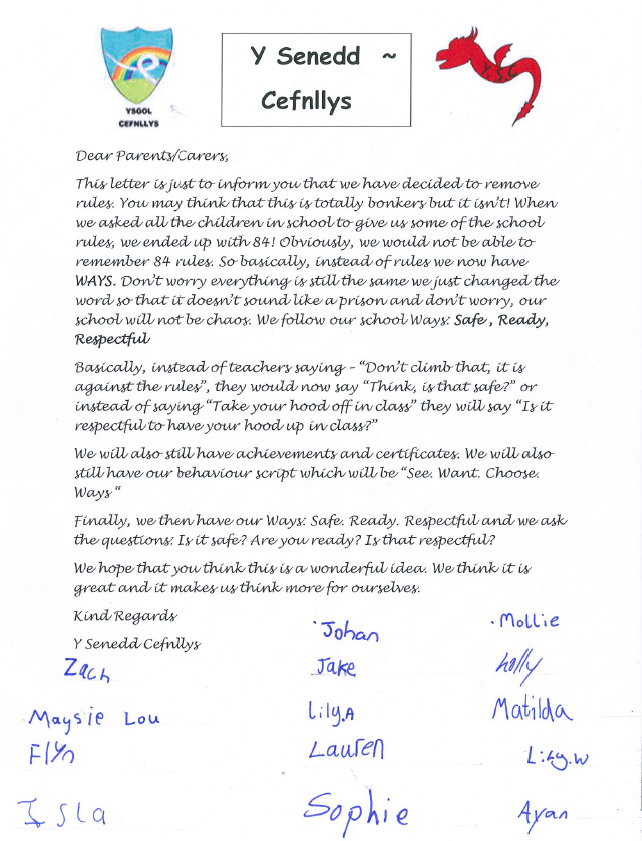 YSGOL
CEFNLLYS
Y Senedd ~
Cefnllys
Y S C
Dear Parents/Carers,
This letter is just to inform you that we have decided to remove
rules. You may think that this is totally bonkers but it isn't! When
we asked all the children in school to give us some of the school
rules, we ended up with 84! Obviously, we would not be able to
remember 84 rules. So basically, instead of rules we now have
WAYS. Don't worry everything is still the same we just changed the
word so that it doesn't sound like a prison and don't worry, our
school will not be chaos. We follow our school Ways: Safe , Ready,
Respectful
Basically, instead of teachers saying – "Don't climb that, it is
against the rules", they would now say "Think, is that safe?" or
instead of saying "Take your hood off in class" they will say "Is it
respectful to have your hood up in class?"
We will also still have achievements and certificates. We will also
still have our behaviour script which will be "See. Want. Choose.
Ways "
Finally, we then have our Ways: Safe. Ready. Respectful and we ask
the questions: Is it safe? Are you ready? Is that respectful?
We hope that you think this is a wonderful idea. We think it is
great and it makes us think more for ourselves.
Kind Regards
Y Senedd Cefnllys
Johan
Mollie
Zach
Jake
holly
Maysie Lou
Lily.A
Matilda
Flyn
Lauren
Lily.W
Isla
Sophie
Ayan